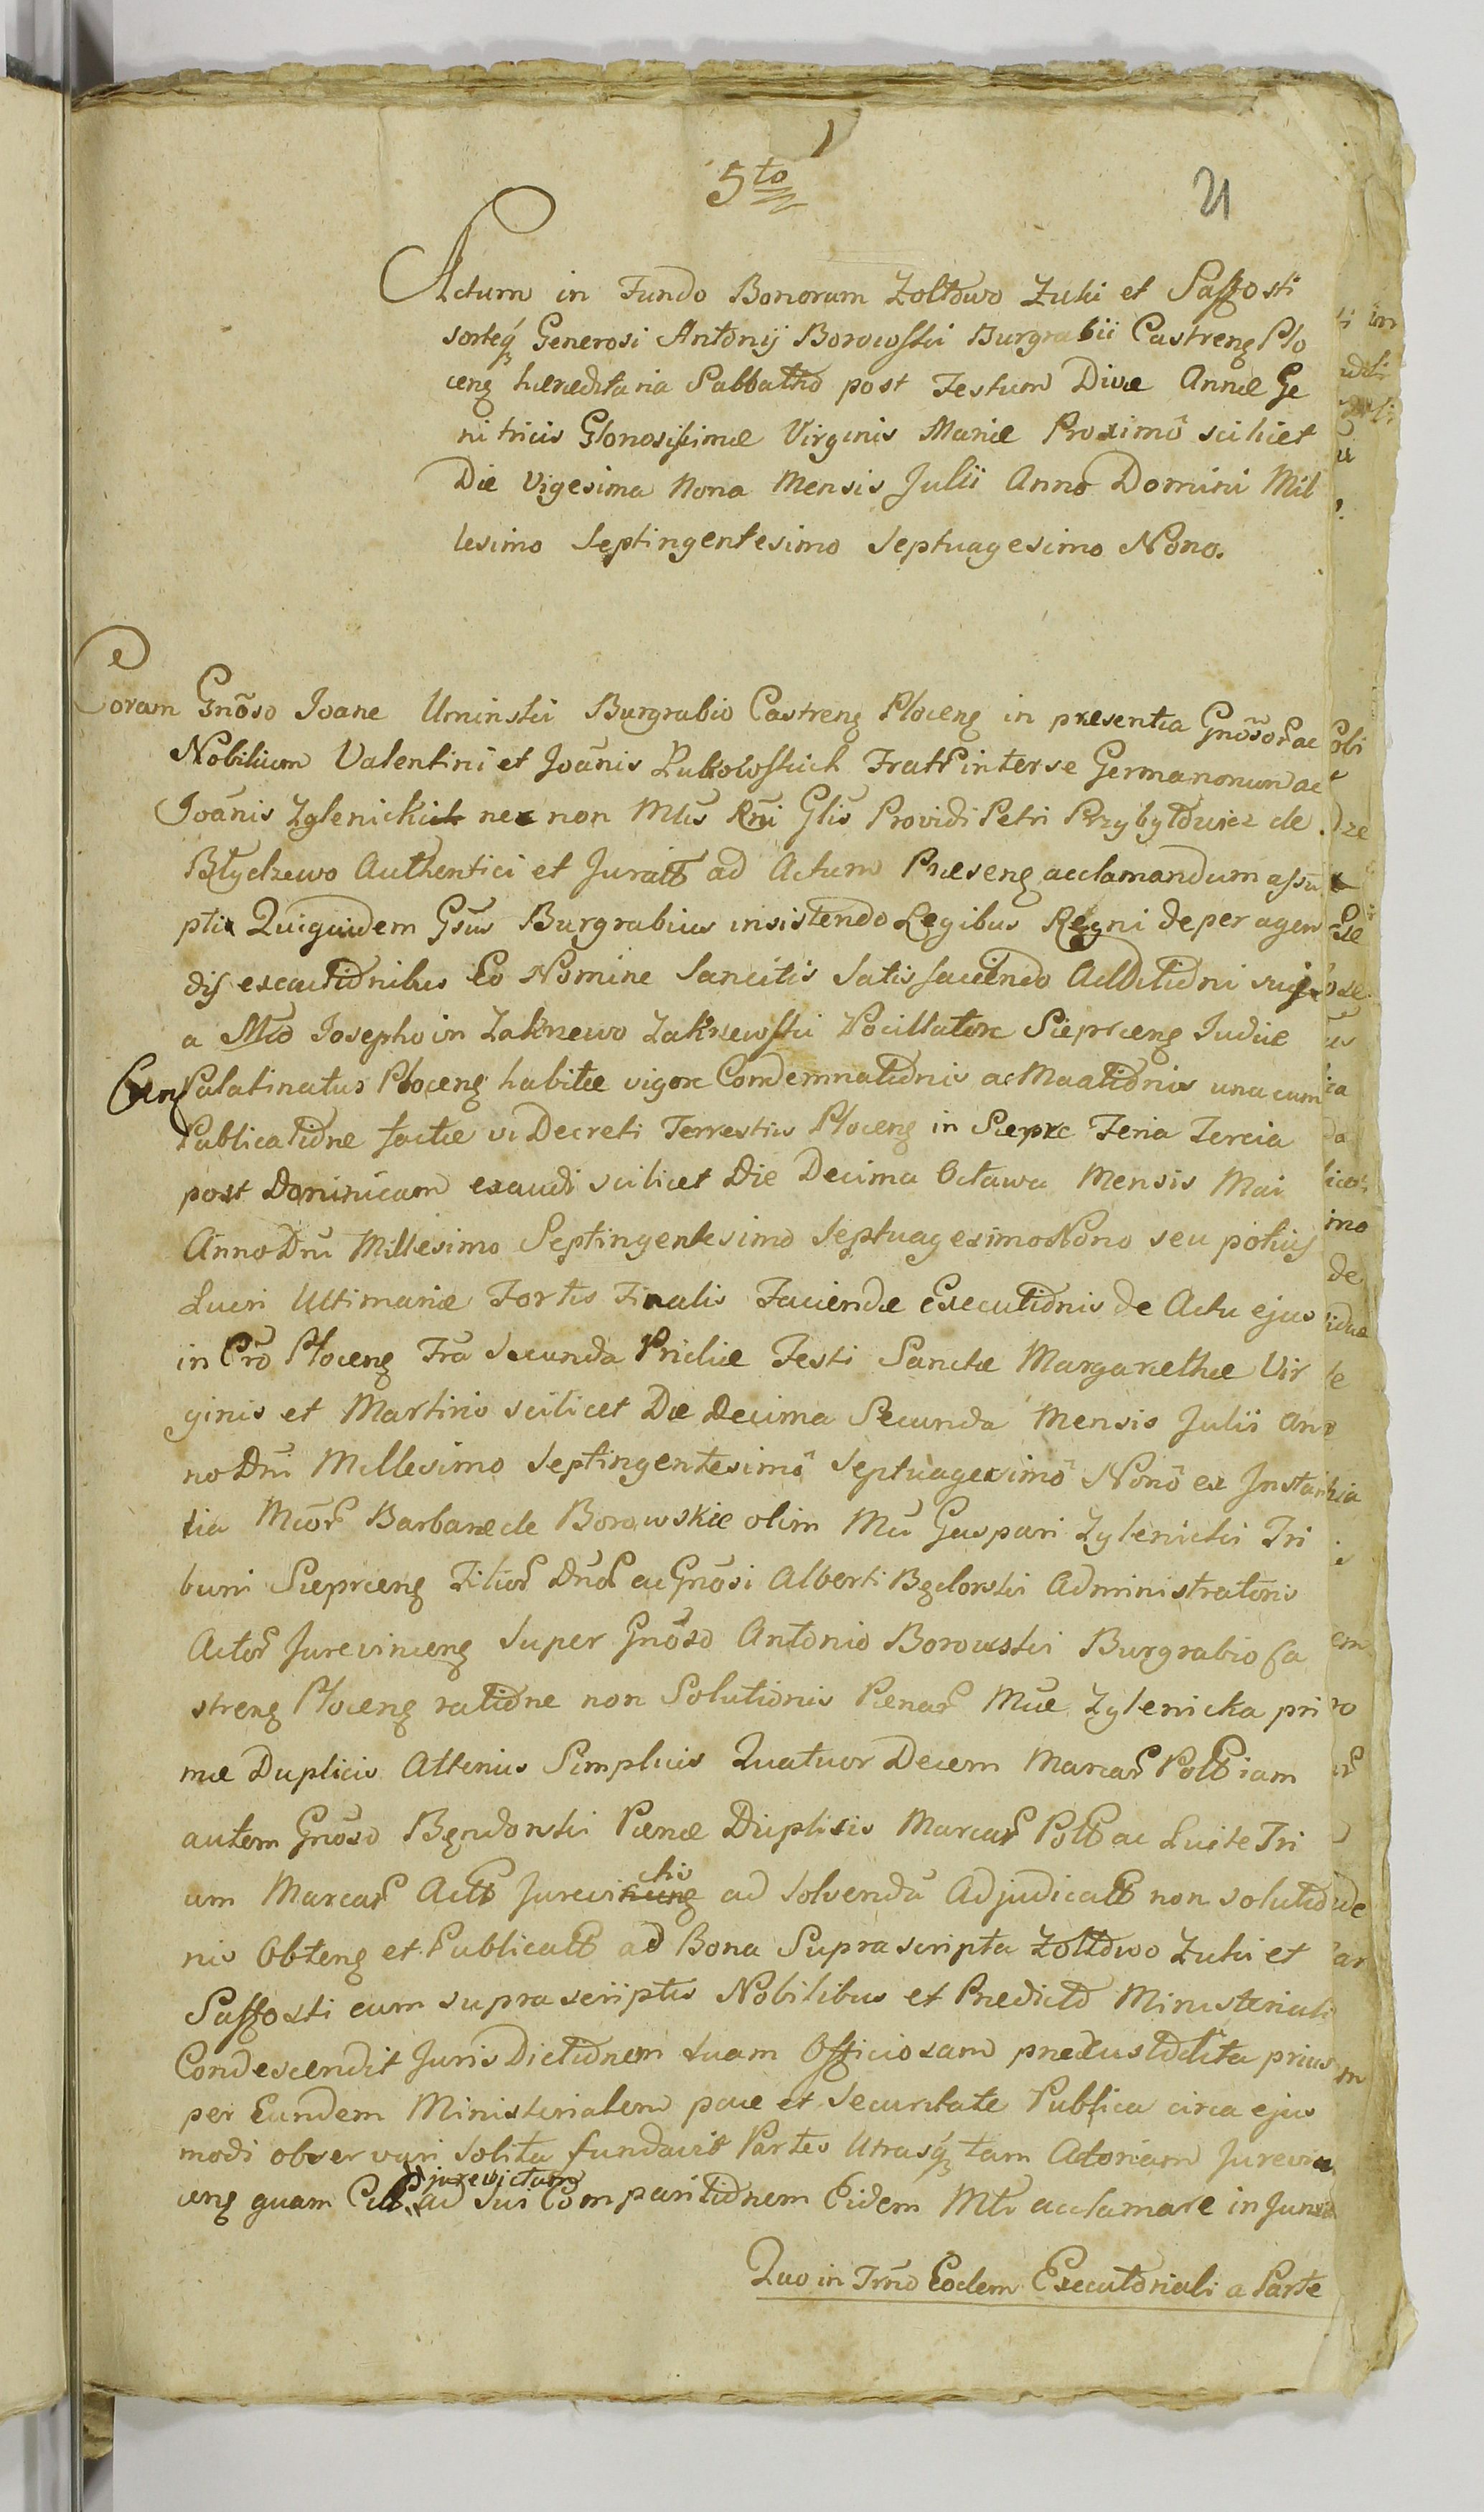 5to
21
Actum in Fundo Bonorum Zoltowo Zuki et Saffosti
sorteqꝫ Generosi Antonij Borowski Burgrabii Castrenꝫ Plo
cenꝫ hæreditaria Sabbatho post Festum Divæ Annæ Ge
nitricis Gloriosissimæ Virginis Mariæ Proximô scilicet
Die Vigesima Nona Mensis Julii Anno Domini Mil
lesimo Septingentesimo Septuagesimo Nono.
Coram Gnõso Joane Uminski Burgrabio Castrenꝫ Plocenꝫ in presentia Gnõsor ac
Nobilium Valentini et Joãnis Lukoloskich Fratr inter se Germanorum ac
Joãnis Zglenicki nec non Mlis Rñi Glis Providi Petri Przybytowicz de
Blychewo Authentici et Jurati ad Actum Præsenꝫ acclamandum assu
pti Quiquidem Gsus Burgrabius insistendo Legibus Regni de per agen
dis executionibus Eo Nomine Sancitis Satisfaciendo Additioni suj
a Mco Josepho in Zakrzewo Zakrzewski Pocillatore Sieprcenꝫ Judice
Cen Palatinatus Plocenꝫ habitæ vigore Condemnationis ac Maationis una cum
Publicatione factæ vi Decreti Terrestris Plocenꝫ in Sieprc Feria Tercia
post Dominicam exaudi scilicet Die Decima Octawa Mensis Mai
Anno Dni Millesimo Septingentesimo Septuagesimo Nono seu potius
Lucri Ultimariæ Fortis Finalis Faciendæ Executionis de Actu ejus
in Cro Plocenꝫ Fra Secunda Pridie Festi Sanctæ Margarethæ Vir
ginis et Martiris scilicet Die Decima Secunda Mensis Julii An
no Dni Millesimo Septingentesimô Septuagesimô Nonô ex Instan
tia Mcor Barbaræ de Borowskie olim Mci Gaspari Zglenicki Tri
buni Sieprcenꝫ Filior Dnor ac Gnosi Alberti Będorski Administratoris
Actor Jurevincenꝫ Super Gnõso Antonio Borowski Burgrabio Ca
strenꝫ Plocenꝫ ratione non Solutionis Pœnar Mcæ Zglenicka pri
mæ Duplicis Alterius Simplicis Quatuor Decem Marcar Poll iam
autem Gnõso Bendorski Pœnæ Duplisis Marcar Poll ac Luite Tri
um Marcar Actt Jurevincenꝫ ctis ad Solvendũ Adjudicatt non solutio
nis Obtenꝫ et Publicatt ad Bona Suprascripta Zoltowo Zuki et
Saffosti cum supra scriptis Nobilibus et Predicto Ministeriali
Condescendit Jurisdictionem suam Officiosam prexustodita prius
per Eundem Ministerialem pace et Securitate Publica circa ejus
modi observari Solita fundavit Partes Utrasqꝫ tam Actoriam Jurevin
cenꝫ quam Citt jurevictam ad sui Comparitionem Eidem Mli acclamare in Junxit
Quo in Trno Eodem Executoriali a Parte